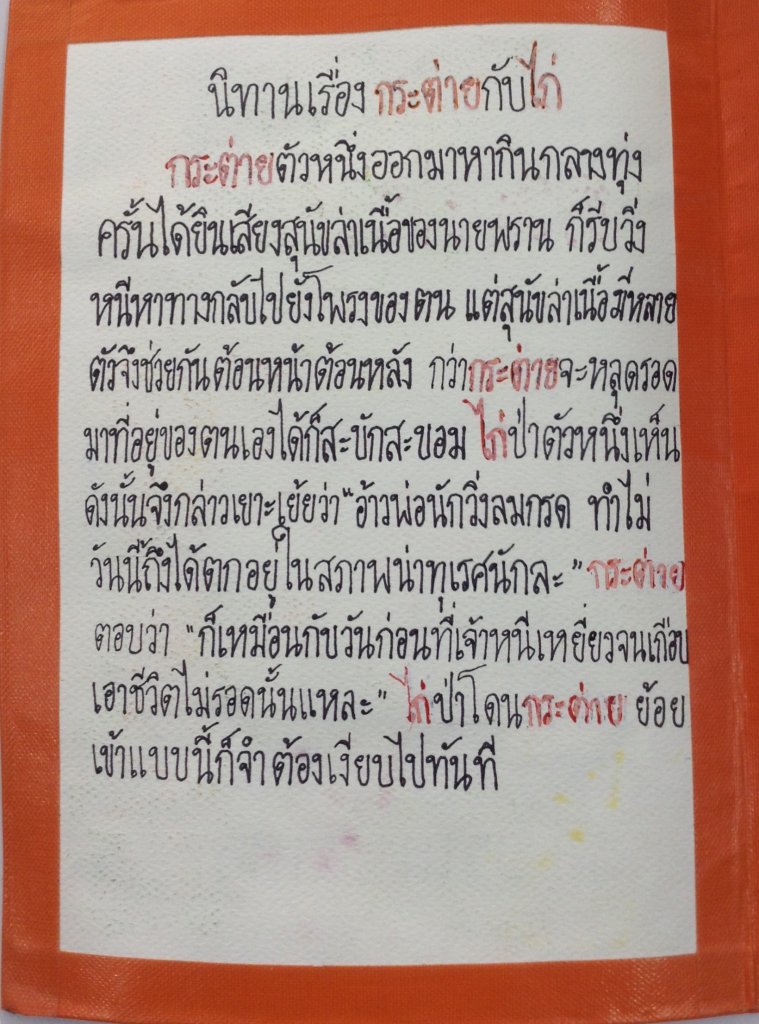 นิทานเรื่อง กระต่ายกับไก่
กระต่ายตัวหนึ่งออกมาหากินกลางทุ่ง
ครั้นได้ยินเสียงสุนัขล่าเนื้อของนายพราน ก็รีบวิ่ง
หนีหาทางกลับไปยังโพรงของตน แต่สุนัขล่าเนื้อมีหลาย
ตัวจึงช่วยกันต้อนหน้าต้อนหลัง กว่ากระต่ายจะหลุดรอด
มาที่อยู่ของตนเองได้ก็สะบักสะบอม ไก่ป่าตัวหนึ่งเห็น
ดังนั้นจึงกล่าวเยาะเย้ยว่า "อ้าวพ่อนักวิ่งลมกรด ทำไม่
วันนี้ถึงได้ตกอยู่ในสภาพน่าทุเรศนักละ" กระต่าย
ตอบว่า "ก็เหมือนกับวันก่อนที่เจ้าหนีเหยี่ยวจนเกือบ
เอาชีวิตไม่รอดนั้นแหละ" ไก่ป่าโดนกระต่าย ย้อย
เข้าแบบนี้ก็จำต้องเงียบไปทันที